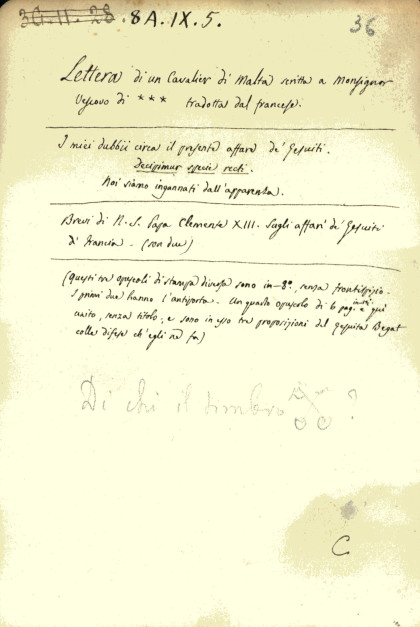 3G.11.28. 8A.IX.5.
36
Lettera di un Cavalier di Malta scritta a Monsignor
Vescovo di *** tradotta dal francese.
I miei dubbii circa il presente affare de' Gesuiti.
Decipimur specie recti.
Noi siamo ingannati dall'apparenza.
Brevi di N. S. Papa Clemente XIII. sugli affari de' Gesuiti
di Francia - (son due)
(Questi tre opuscoli di stampa diversa sono in-8°, senza frontispizio.
I primi due hanno l'antiporta. Un quarto opuscolo di 6 pag. è qui
unito, senza titolo, e sono in esso tre proposizioni del Gesuita Begat
colle difese ch'egli ne fa)
Di chi il timbro ?
C